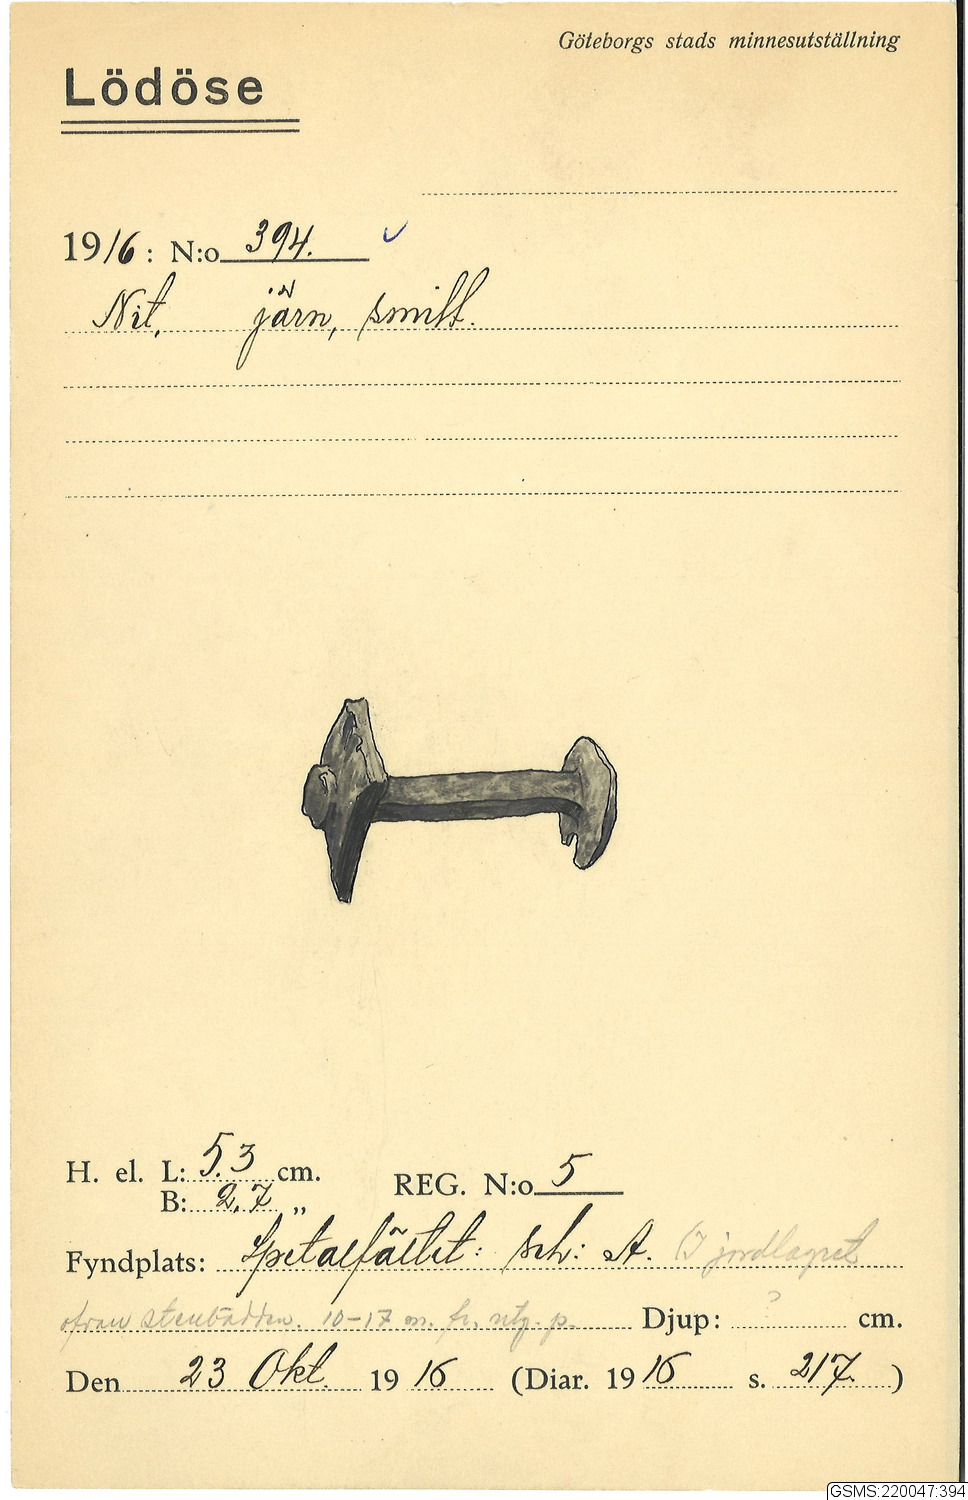 Göteborgs stads minnesutställning
Lödöse
1916: N:o 394.
Nit, järn, smitt.
H. el. L: 5.3 cm.
REG. N:o 5
B: 2,7 „
Fyndplats: Spetalfältet: sch: A. (I jordlagret
ofvan stenbädden. 10-17 m. fr. utg. p. Djup: ? cm.
Den 23 Okt. 1916 (Diar. 1916 s. 217.)
GSMS:220047:394